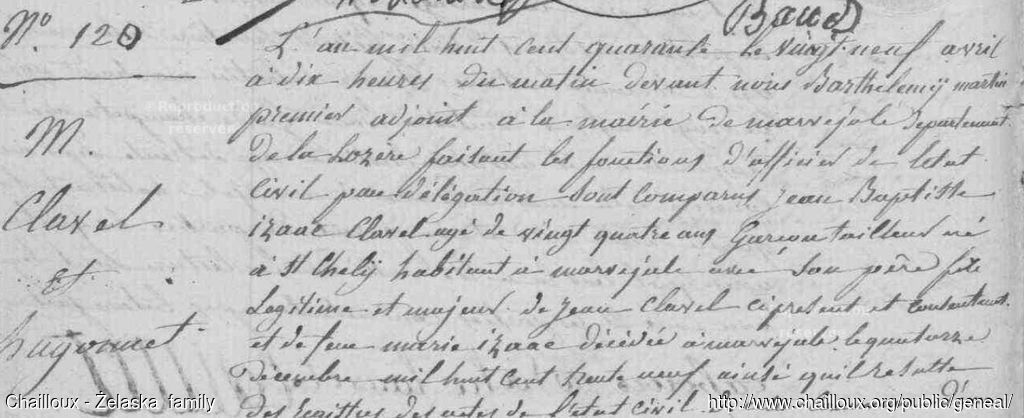 (Baud)
N° 120
M.
Clavel
et
hugonnet
L'an mil huit cent quarante le vingt-neuf avril
à dix heures du matin devant nous Barthelemÿ martin
premier adjoint à la mairie de marvejols Departement
de la Lozère faisant les fonctions d'officier de letat
Civil par délégation sont comparus jean Baptiste
izaac Clavel agé de vingt quatre ans Garçon tailleur né
à St Chelÿ habitant à marvejols avec son père fils
Legitime et majeur de jean Clavel ci present et consentant
et de feue marie izaac décédée à marvejols le quatorze
Décembre mil huit cent trente neuf ainsi quil resulte
des registres des actes de l'etat Civil
Reproduction
reservée
Chailloux - Żelaska family
http://www.chailloux.org/public/geneal/